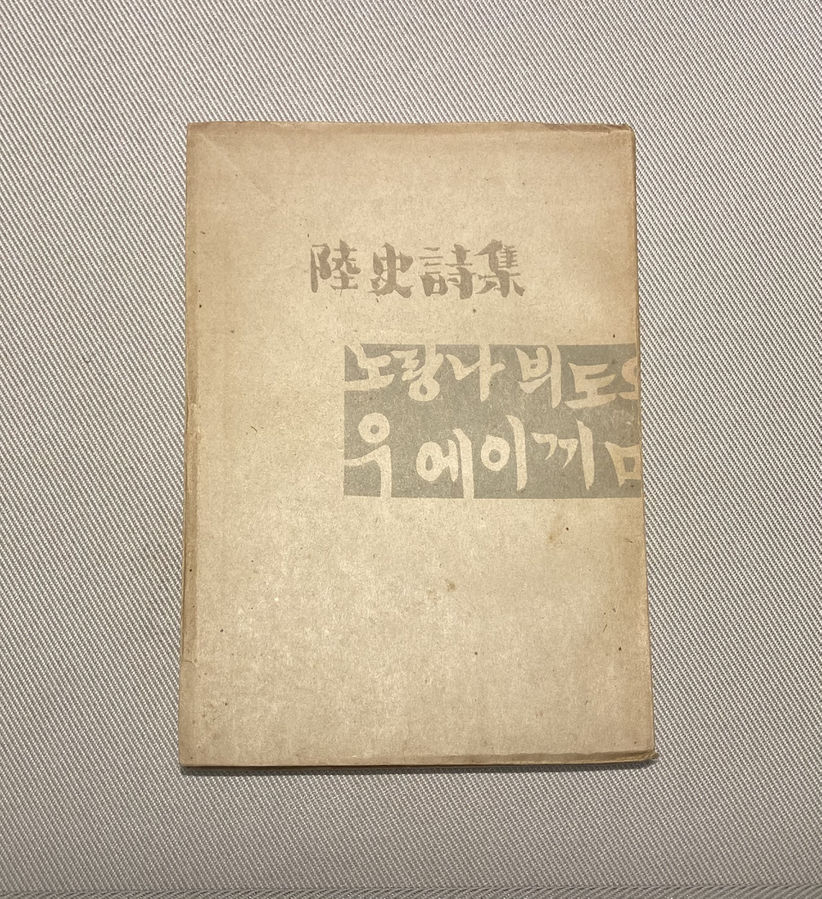 陸史詩集
노랑나븨도
우에이끼